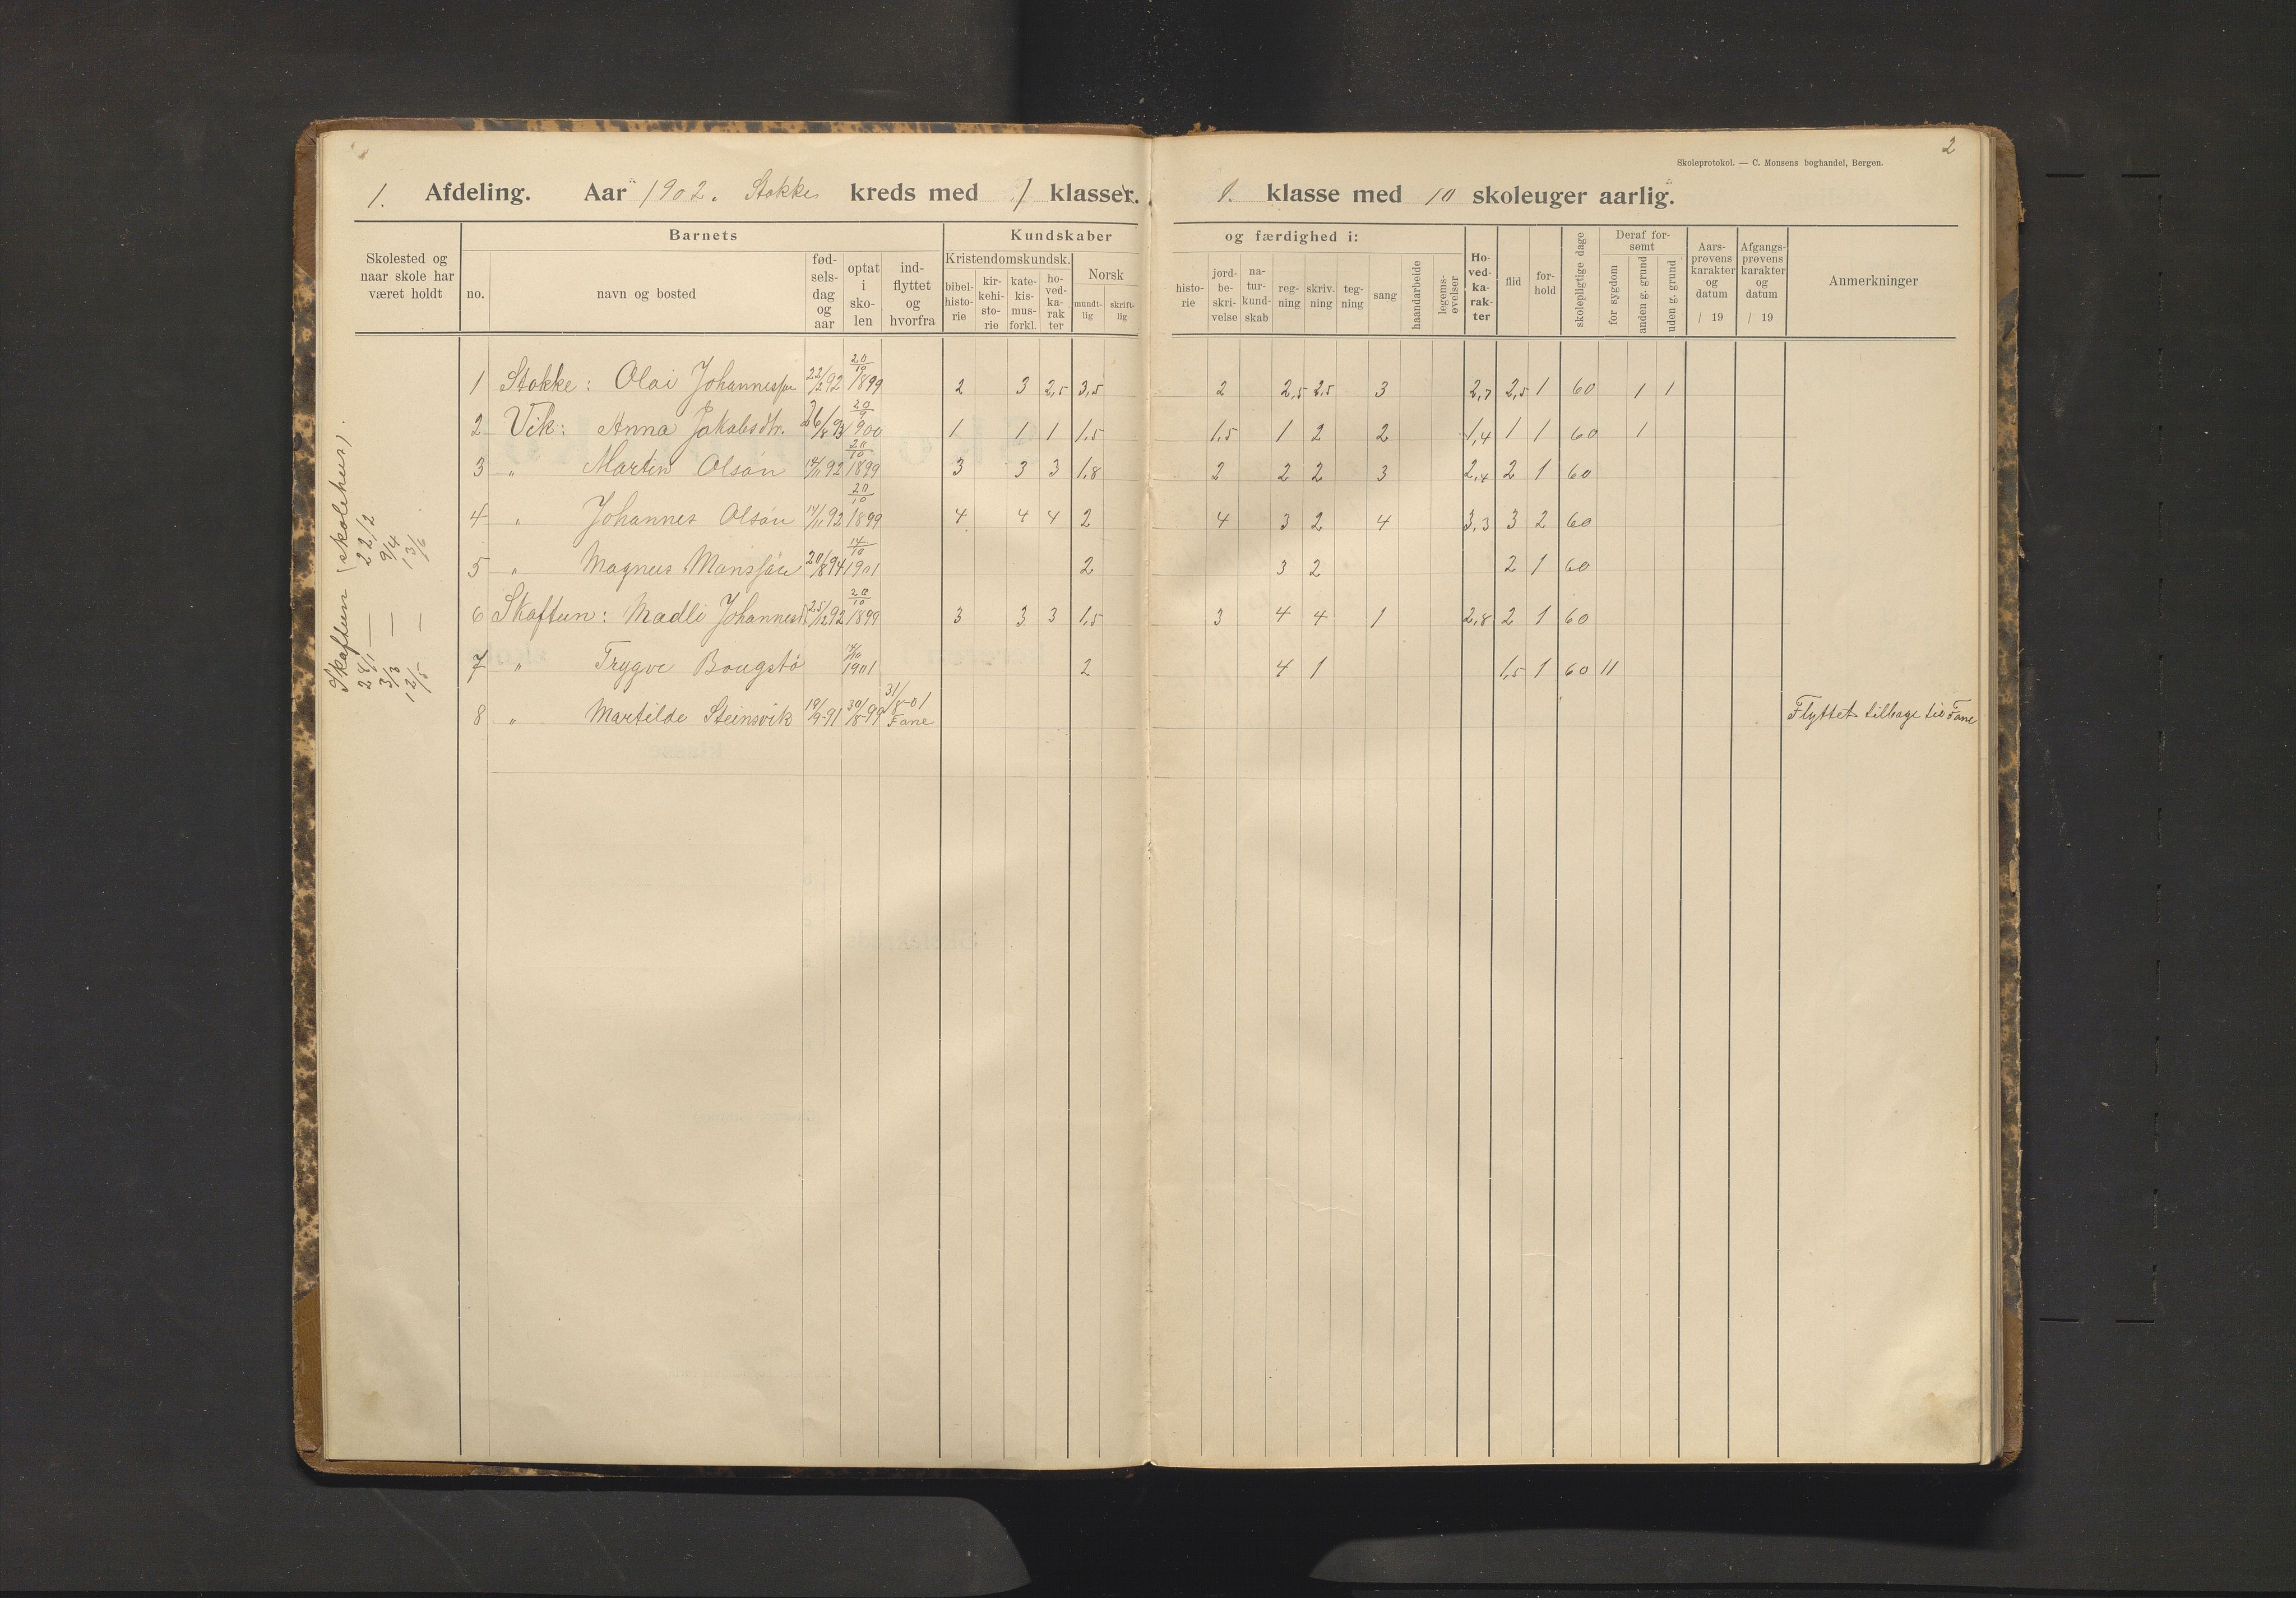 2
Skoleprotokol. — C. Monsens boghandel, Bergen.
1. Afdeling. Aar 1902. Stokke kreds med 1 klasser. 1. klasse med 10 skoleuger aarlig.
Skolested og naar skole har været holdt
Barnets
no.
navn og bosted
fød-sels-dag og aar
optat i sko-len
ind-flyttet og hvorfra
Kundskaber og færdighed i:
Kristendomskundsk.
bibel-histo-rie
kir-kehi-sto-rie
kate-kis-mus-forkl.
ho-ved-ka-rak ter
Norsk
mundt-lig
skrift-lig
histo-rie
jord-be-skri-velse
na-tur-kund-skab
reg-ning
skriv.ning
teg-ning
sang
haandarbeide
legems-øvelser
Ho-ved-ka-rak-ter
flid
for-hold
skolepligtige dage
Deraf for-sømt
for sygdom
anden g. grund
uden g. grund
Aars-prøvens karakter og datum
/ 19
Afgangs-prøvens karakter og datum
/ 19
Anmerkninger
Skaftun (skolehus).
28/1 — 22/2
3/3 — 9/4
12/5 — 13/6
1 Stokke: Olai Johannessøn 22/2 92 20/10 1899 2 3 2,5 3,5 2 2,5 2,5 3 2,7 2,5 1 60 1 1
2 Vik: Anna Jakobsdtr. 26/8 93 20/9 900 1 1 1 1,5 1,5 1 2 2 1,4 1 1 60 1
3 " Martin Olsøn 14/11 92 20/10 1899 3 3 3 1,8 2 2 2 3 2,4 2 1 60
4 " Johannes Olsøn 14/11 92 20/10 1899 4 4 4 2 4 3 2 4 3,3 3 2 60
5 " Magnus Monssøn 20/8 94 14/10 1901 2 3 2 2 1 60
6 Skaftun: Madli Johannesd. 25/12 92 20/10 1899 3 3 3 1,5 3 4 4 1 2,8 2 1 60
7 " Trygve Bougstø 14/10 1901 2 4 1 1,5 1 60 11
8 " Martilde Steinsvik 19/9-91 30/8-99 31/8-01 Fane Flyttet tilbage til Fane